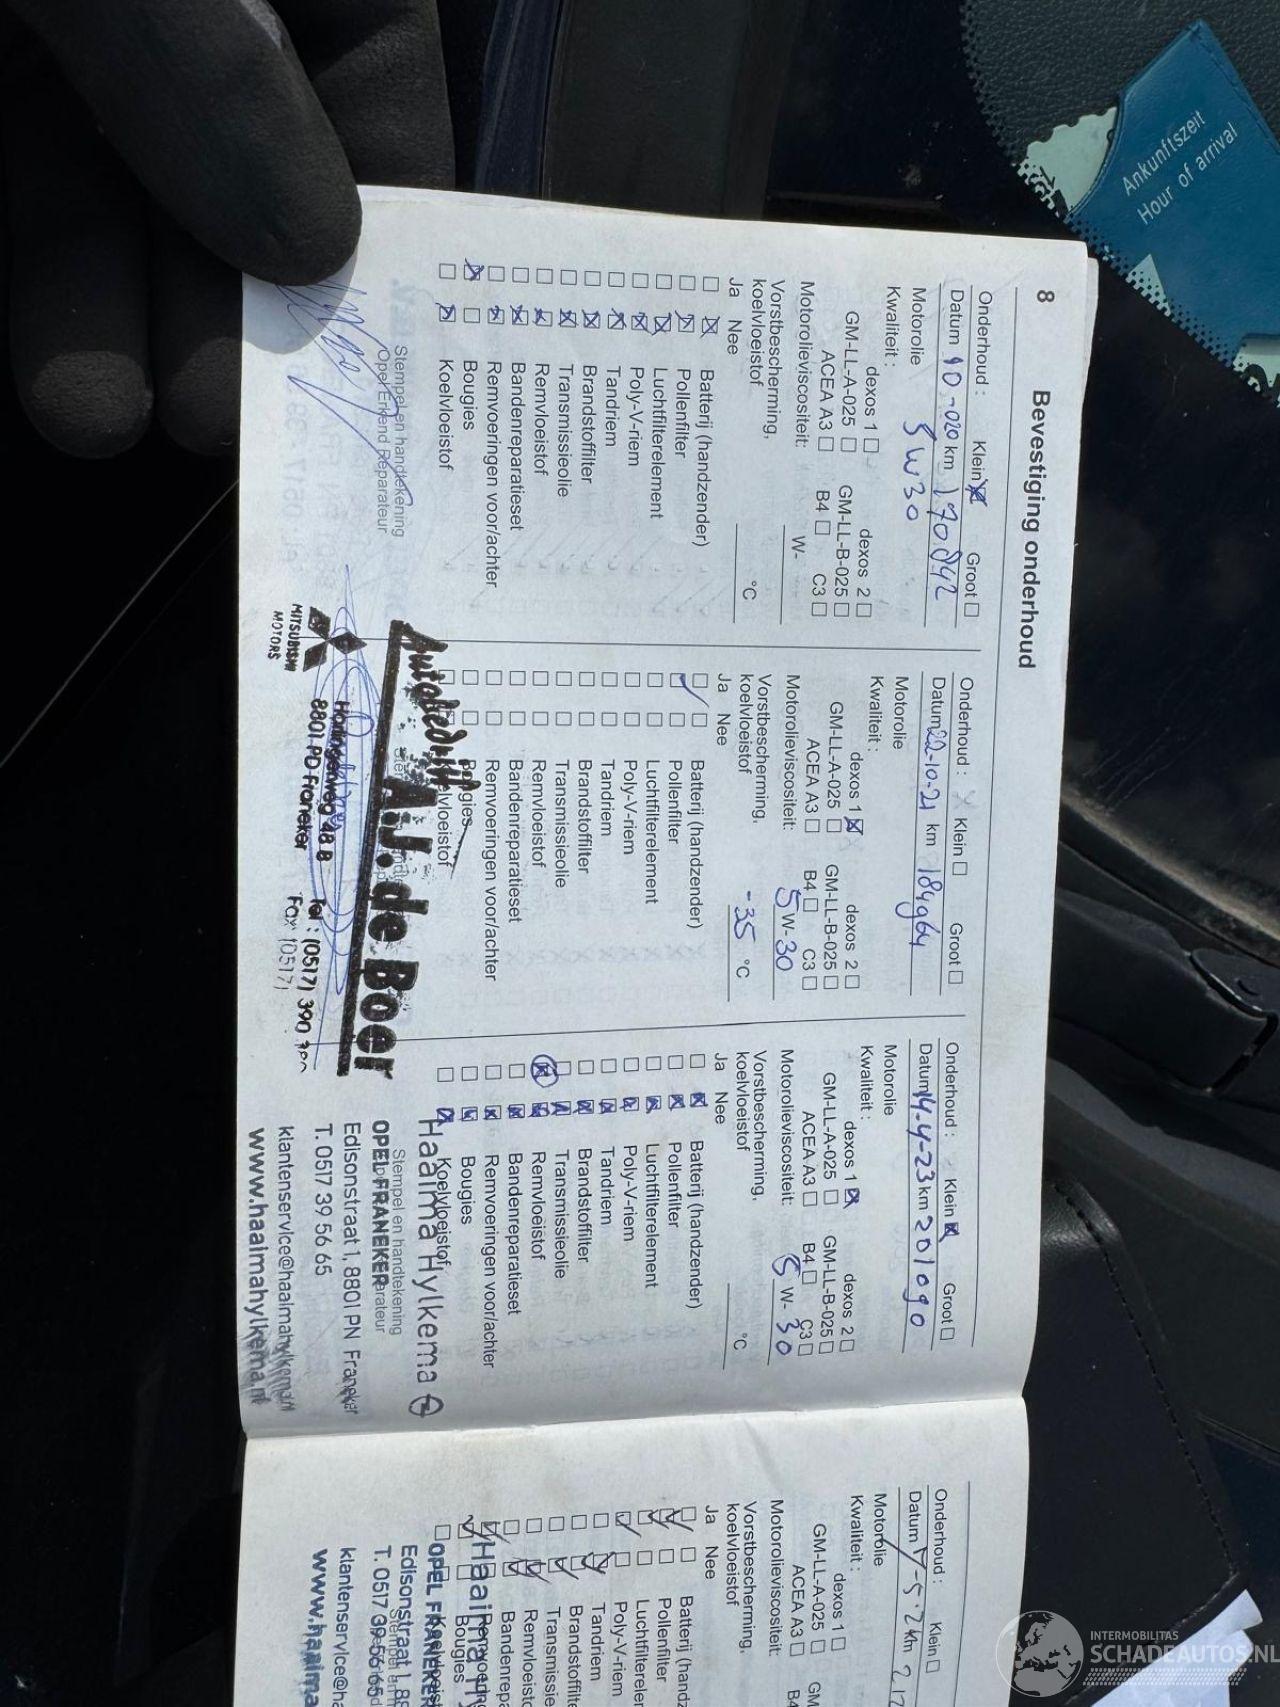 Ankunftszeit
Hour of arrival
8 Bevestiging onderhoud
Onderhoud : Klein Groot
Datum 10-020 km 170.842
Motorolie 5W30
Kwaliteit :
dexos 1 dexos 2
GM-LL-A-025 GM-LL-B-025
ACEA A3 B4 C3
Motorolieviscositeit: W-
Vorstbescherming,
koelvloeistof °C
Ja Nee
Batterij (handzender)
Pollenfilter
Luchtfilterelement
Poly-V-riem
Tandriem
Brandstoffilter
Transmissieolie
Remvloeistof
Bandenreparatieset
Remvoeringen voor/achter
Bougies
Koelvloeistof
Stempel en handtekening
Opel Erkend Reparateur
Onderhoud : Klein Groot
Datum 22-10-21 km 184964
Motorolie
Kwaliteit :
dexos 1 dexos 2
GM-LL-A-025 GM-LL-B-025
ACEA A3 B4 C3
Motorolieviscositeit: 5 W- 30
Vorstbescherming,
koelvloeistof -35 °C
Ja Nee
Batterij (handzender)
Pollenfilter
Luchtfilterelement
Poly-V-riem
Tandriem
Brandstoffilter
Transmissieolie
Remvloeistof
Bandenreparatieset
Remvoeringen voor/achter
Bougies
Koelvloeistof
Autobedrijf
A.J. de Boer
Harlingerweg 48 B
8801 PD Franeker Tel : (0517) 390
Fax (0517)
MITSUBISHI
MOTORS
Onderhoud : Klein Groot
Datum 14-4-23 km 201090
Motorolie
Kwaliteit :
dexos 1 dexos 2
GM-LL-A-025 GM-LL-B-025
ACEA A3 B4 C3
Motorolieviscositeit: 5 W- 30
Vorstbescherming,
koelvloeistof °C
Ja Nee
Batterij (handzender)
Pollenfilter
Luchtfilterelement
Poly-V-riem
Tandriem
Brandstoffilter
Transmissieolie
Remvloeistof
Bandenreparatieset
Remvoeringen voor/achter
Bougies
Koelvloeistof
Haaima Hylkema
Stempel en handtekening
OPEL FRANEKER
Edisonstraat 1, 8801 PN Franeker
T. 0517 39 56 65
klantenservice@haaimahylkema.nl
www.haaimahylkema.nl
Onderhoud : Klein
Datum km
Motorolie
Kwaliteit :
dexos 1
GM-LL-A-025 GM
ACEA A3 B4
Motorolieviscositeit:
Vorstbescherming,
koelvloeistof
Ja Nee
Batterij (handz
Pollenfilter
Luchtfilterelemen
Poly-V-riem
Tandriem
Brandstoffilte
Transmissie
Remvloeistof
Bandenrepa
Bougies
Haaima
OPEL FRANEKER
Edisonstraat 1, 88
T. 0517 39 56 65
klantenservice@ha
www.haaima
INTERMOBILITAS
SCHADEAUTOS.NL